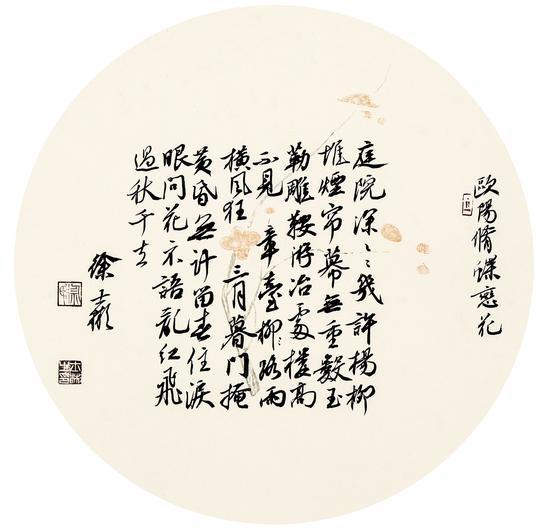 歐陽脩蝶戀花
庭院深〻幾許楊柳
堆煙帘幕無重數玉
勒雕鞍游冶處樓高
不見章臺柳路雨
橫風狂三月暮門掩
黃昏無計留春住淚
眼問花不語亂紅飛
過秋千去
徐